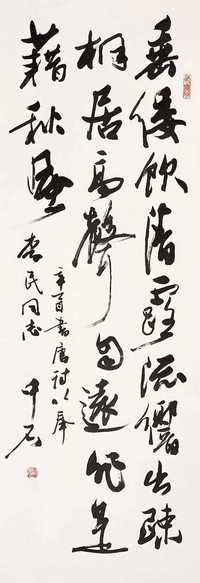 垂緌飲清露流響出疎
桐居高聲自遠非是
藉秋風
辛酉書唐詩以奉
李民同志
中石